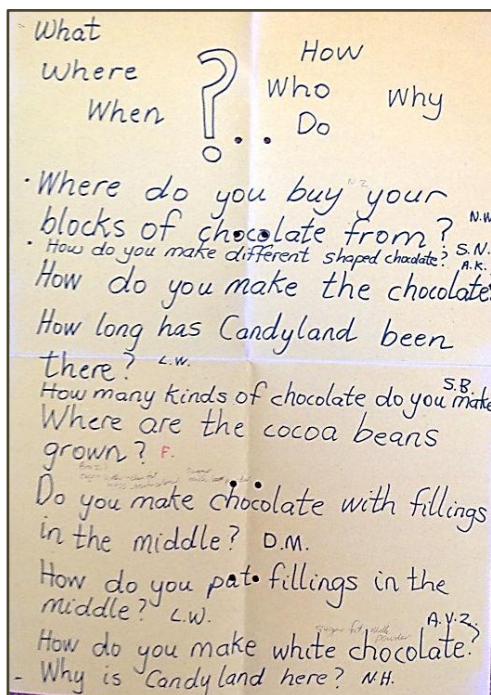 What
How
Where
?
Who
Why
When
Do
Where do you buy NZ your
blocks of chocolate from? N.W.
How do you make different shaped chocolate? S.N.
How do you make the chocolate? A.K.
How long has Candyland been
there? L.W.
How many kinds of chocolate do you make S.B.
Where are the cocoa beans
grown? F.
Do you make chocolate with fillings
in the middle? D.M.
How do you pat fillings in the
middle? L.W.
powder
How do you make white chocolate? A.V.Z.
- Why is Candyland here? N.H.